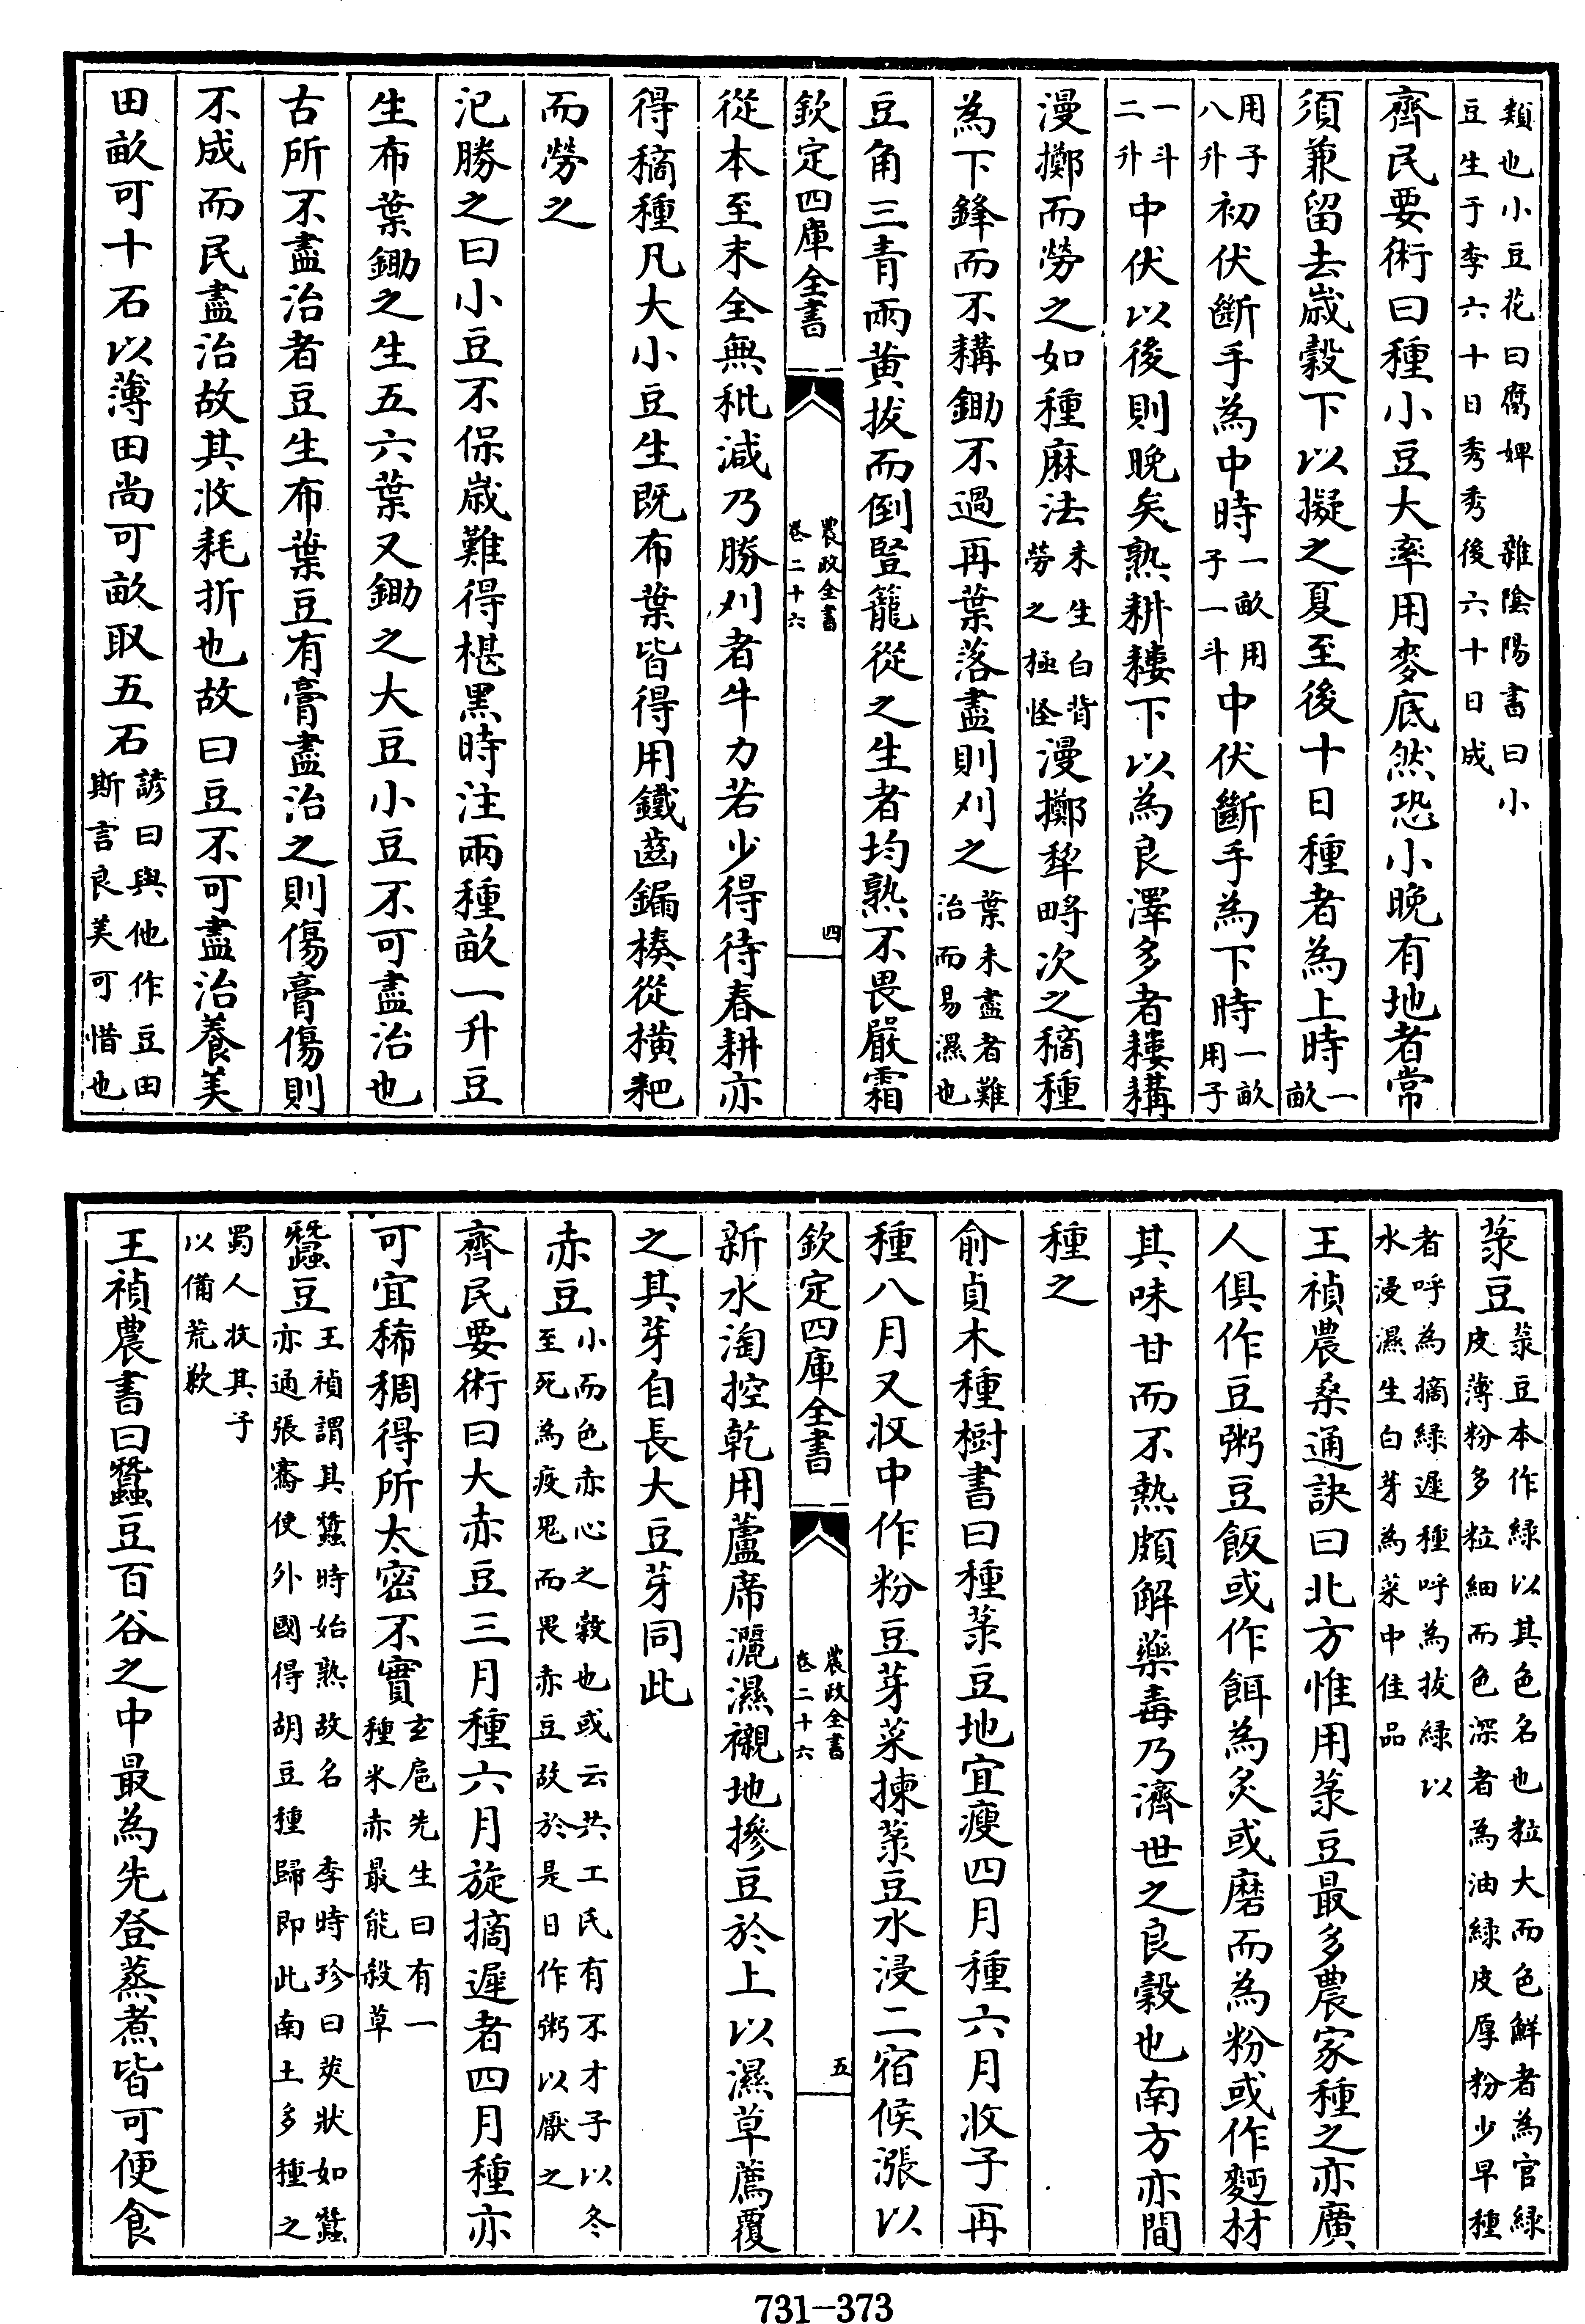 類也小豆花曰腐婢　雜陰陽書曰小
豆生于李六十日秀秀後六十日成
齊民要術曰種小豆大率用麥底然恐小晚有地者常
須兼留去歲穀下以擬之夏至後十日種者為上時一畝
用子八升初伏斷手為中時一畝用子一斗中伏斷手為下時一畝用子
一斗二升中伏以後則晚矣熟耕耬下以為良澤多者耬耩
漫擲而勞之如種麻法未生白背勞之極怪漫擲犂㽟次之稿種
為下鋒而不耩鋤不過再葉落盡則刈之葉未盡者難治而易濕也
豆角三青兩黃拔而倒豎籠從之生者均熟不畏嚴霜
欽定四庫全書
農政全書
卷二十六
四
從本至末全無秕減乃勝刈者牛力若少得待春耕亦
得稿種凡大小豆生既布葉皆得用鐵齒鍽楱從橫耙
而勞之
氾勝之曰小豆不保歲難得椹黑時注兩種畝一升豆
生布葉鋤之生五六葉又鋤之大豆小豆不可盡治也
古所不盡治者豆生布葉豆有膏盡治之則傷膏傷則
不成而民盡治故其收耗折也故曰豆不可盡治養美
田畝可十石以薄田尚可畝取五石諺曰與他作豆田斯言良美可惜也
菉豆菉豆本作綠以其色名也粒大而色鮮者為官綠
皮薄粉多粒細而色深者為油綠皮厚粉少早種
者呼為摘綠遲種呼為拔綠以
水浸濕生白芽為菜中佳品
王禎農桑通訣曰北方惟用菉豆最多農家種之亦廣
人俱作豆粥豆飯或作餌為炙或磨而為粉或作麪材
其味甘而不熱頗解藥毒乃濟世之良穀也南方亦間
種之
俞貞木種樹書曰種菉豆地宜瘦四月種六月收子再
種八月又收中作粉豆芽菜揀菉豆水浸二宿候漲以
欽定四庫全書
農政全書
卷二十六
五
新水淘控乾用蘆席灑濕襯地摻豆於上以濕草薦覆
之其芽自長大豆芽同此
赤豆小而色赤心之穀也或云共工氏有不才子以冬
至死為疫鬼而畏赤豆故於是日作粥以厭之
齊民要術曰大赤豆三月種六月旋摘遲者四月種亦
可宜稀稠得所太密不實玄扈先生曰有一種米赤最能殺草
蠶豆王禎謂其蠶時始熟故名　李時珍曰莢狀如蠶
亦通張騫使外國得胡豆種歸即此南土多種之
蜀人收其子
以備荒歉
王禎農書曰蠶豆百谷之中最為先登蒸煮皆可便食
731-373